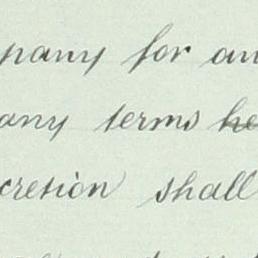 pany for an
any terms he
cretion shall